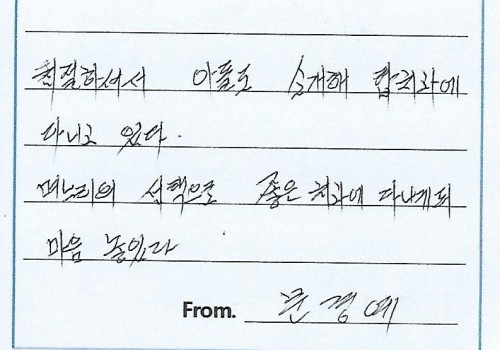 친절하셔서 아들도 소개해 합치과에
다니고 있다.
며느리의 선택으로 좋은 치과에 다니게되
마음 놓인다
From. 문경예